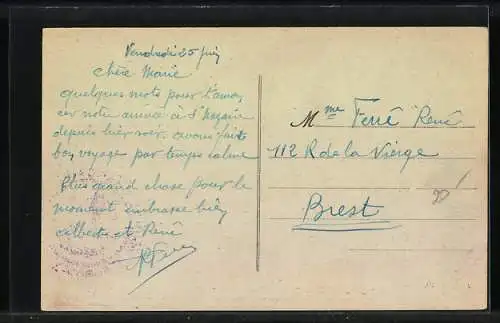 Vendredi 25 juin
Chère Marie
quelques mots pour t'anon
cer notre arrivée à St Nazaire
depuis hier soir. avons fait
bon voyage par temps calme
Plus grand chose pour le
moment embrasse bien
et René
Mme Ferré René
112 R de la Vierge
Brest